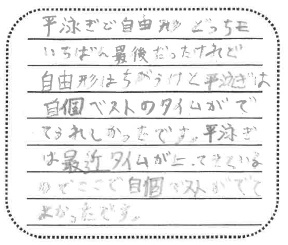 平泳ぎと自由形どっちも
いちばん最後だったけれど
自由形はちがうけど平泳ぎは
自個ベストのタイムがで
てうれしかったです。平泳ぎ
は最近タイムが上ってきている
のでここで自個ベストがでて
よかったです。